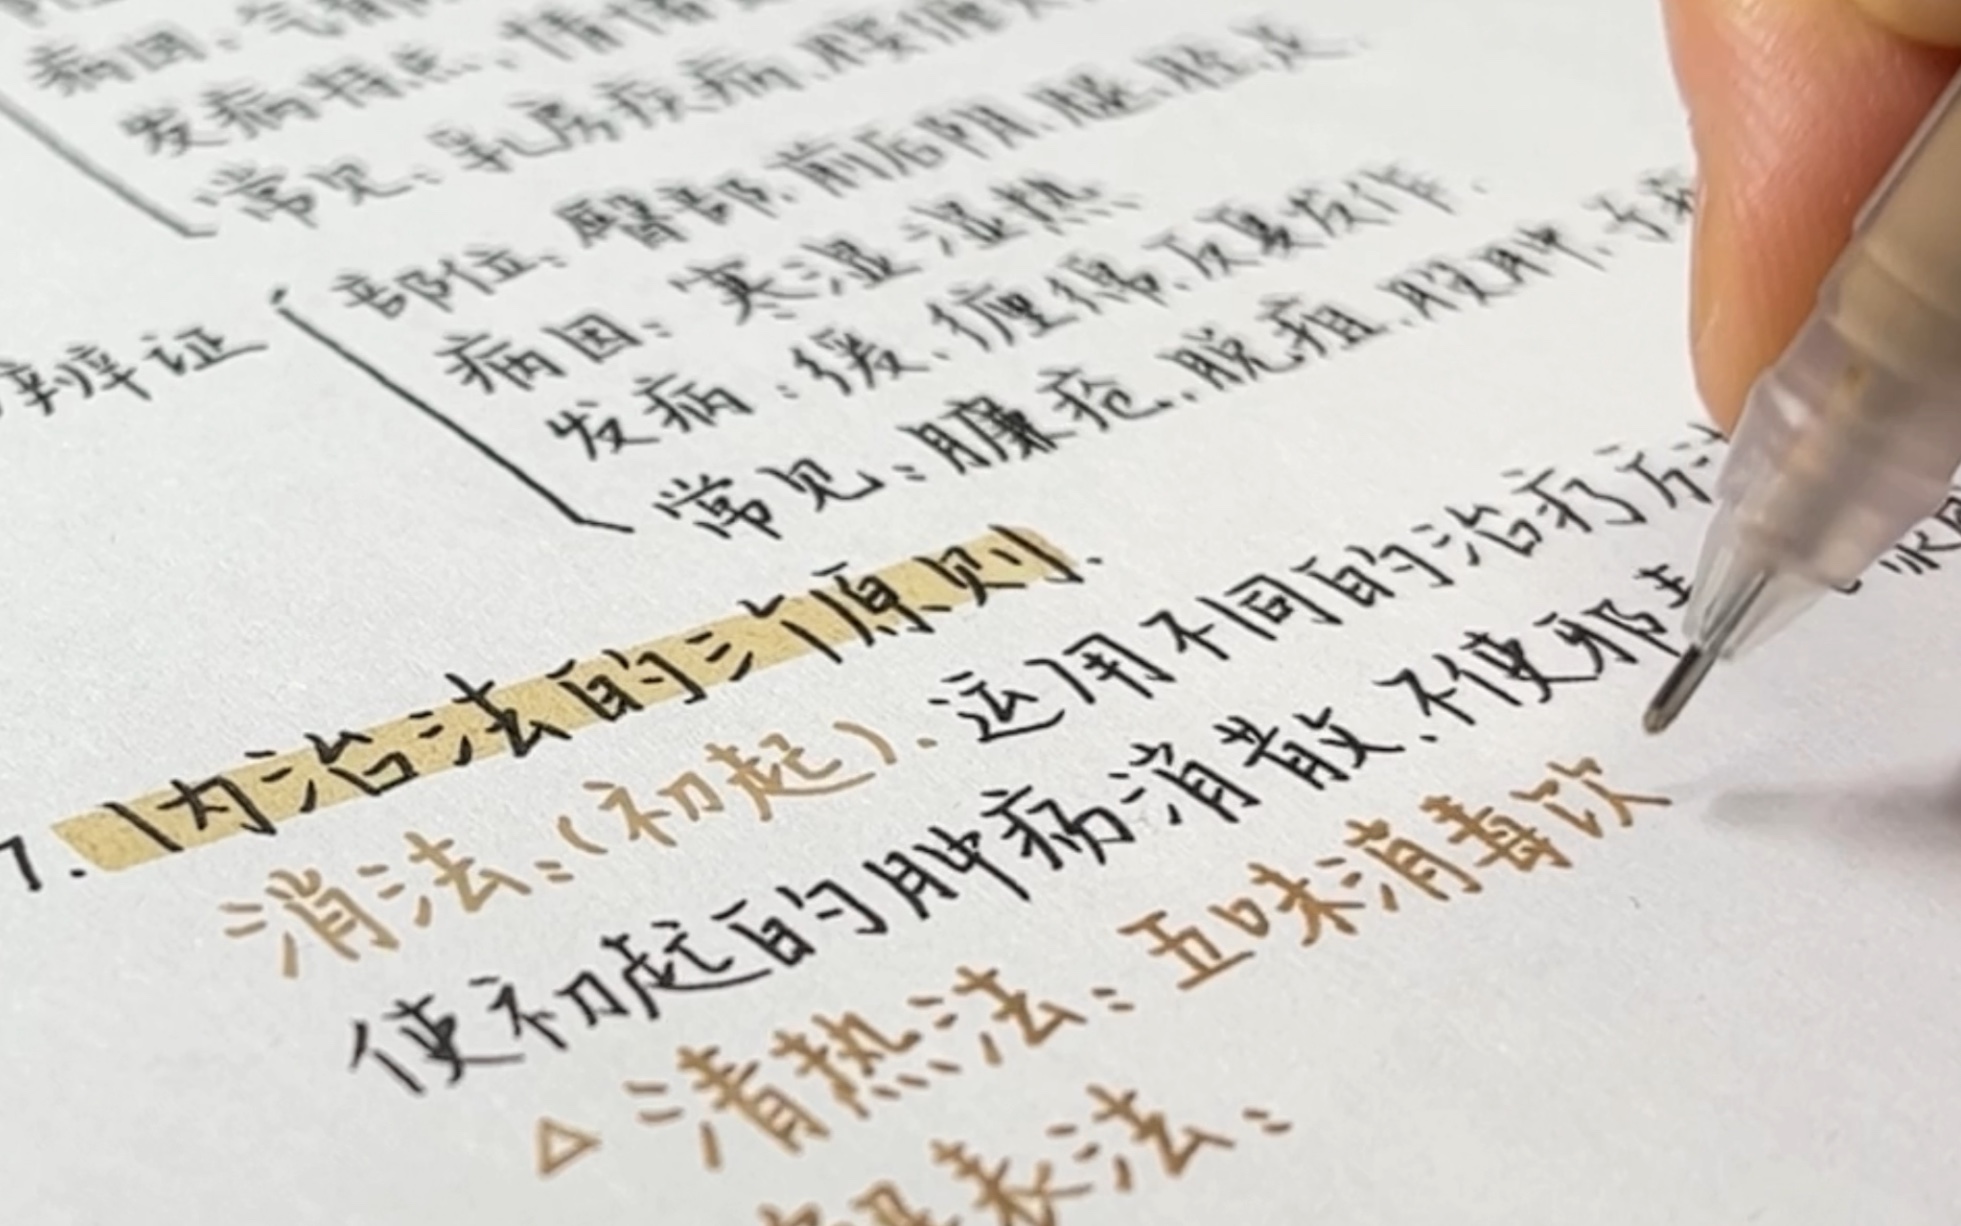 病因：气郁
发病特点：情绪
常见：乳房疾病、腰缠
辨证
部位：臀部、前后阴、腿、胫、足.
病因：寒湿、湿热、
发病：缓、缠绵、反复发作.
常见：臁疮、脱疽、股肿、子痈
7. 内治法的治疗原则.
消法：（初起）. 运用不同的治疗方法
使初起的肿疡消散、不使邪毒
△ 清热法：五味消毒饮
解表法：